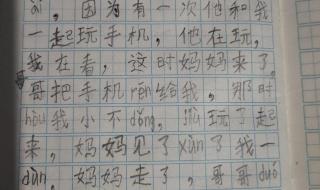 ài。因为有一次他和我
一起玩手机，他在玩，
我在看，这时妈妈来了，
哥把手机rēn给我。那时
hòu我小不dǒng，jiù玩了起
来，妈妈见了xùn了我一
dùn。妈妈走了，哥哥duó